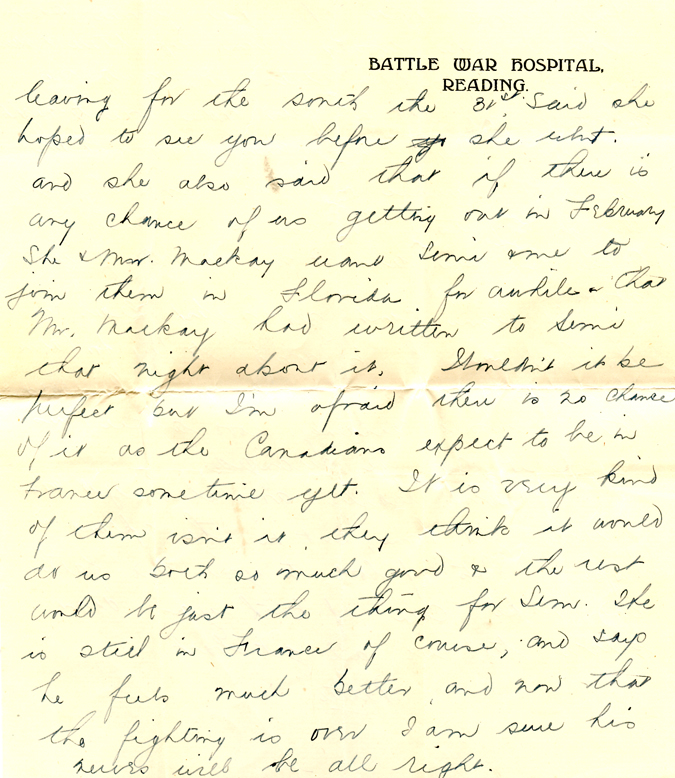 BATTLE WAR HOSPITAL,
READING.
leaving for the south the 31st. Said she
hoped to see you before she went.
and she also said that if there is
any chance of us getting out in February
She & Mr. Mackay want Semi & me to
join them in Florida for awhile & that
Mr. Mackay had written to Semi
that night about it. Wouldn't it be
perfect but I'm afraid there is no chance
of it as the Canadians expect to be in
France sometime yet. It is very kind
of them isn't it, they think it would
do us both so much good & the rest
would be just the thing for Sem. He
is still in France of course, and says
he feels much better, and now that
the fighting is over I am sure his
nerves will be all right.